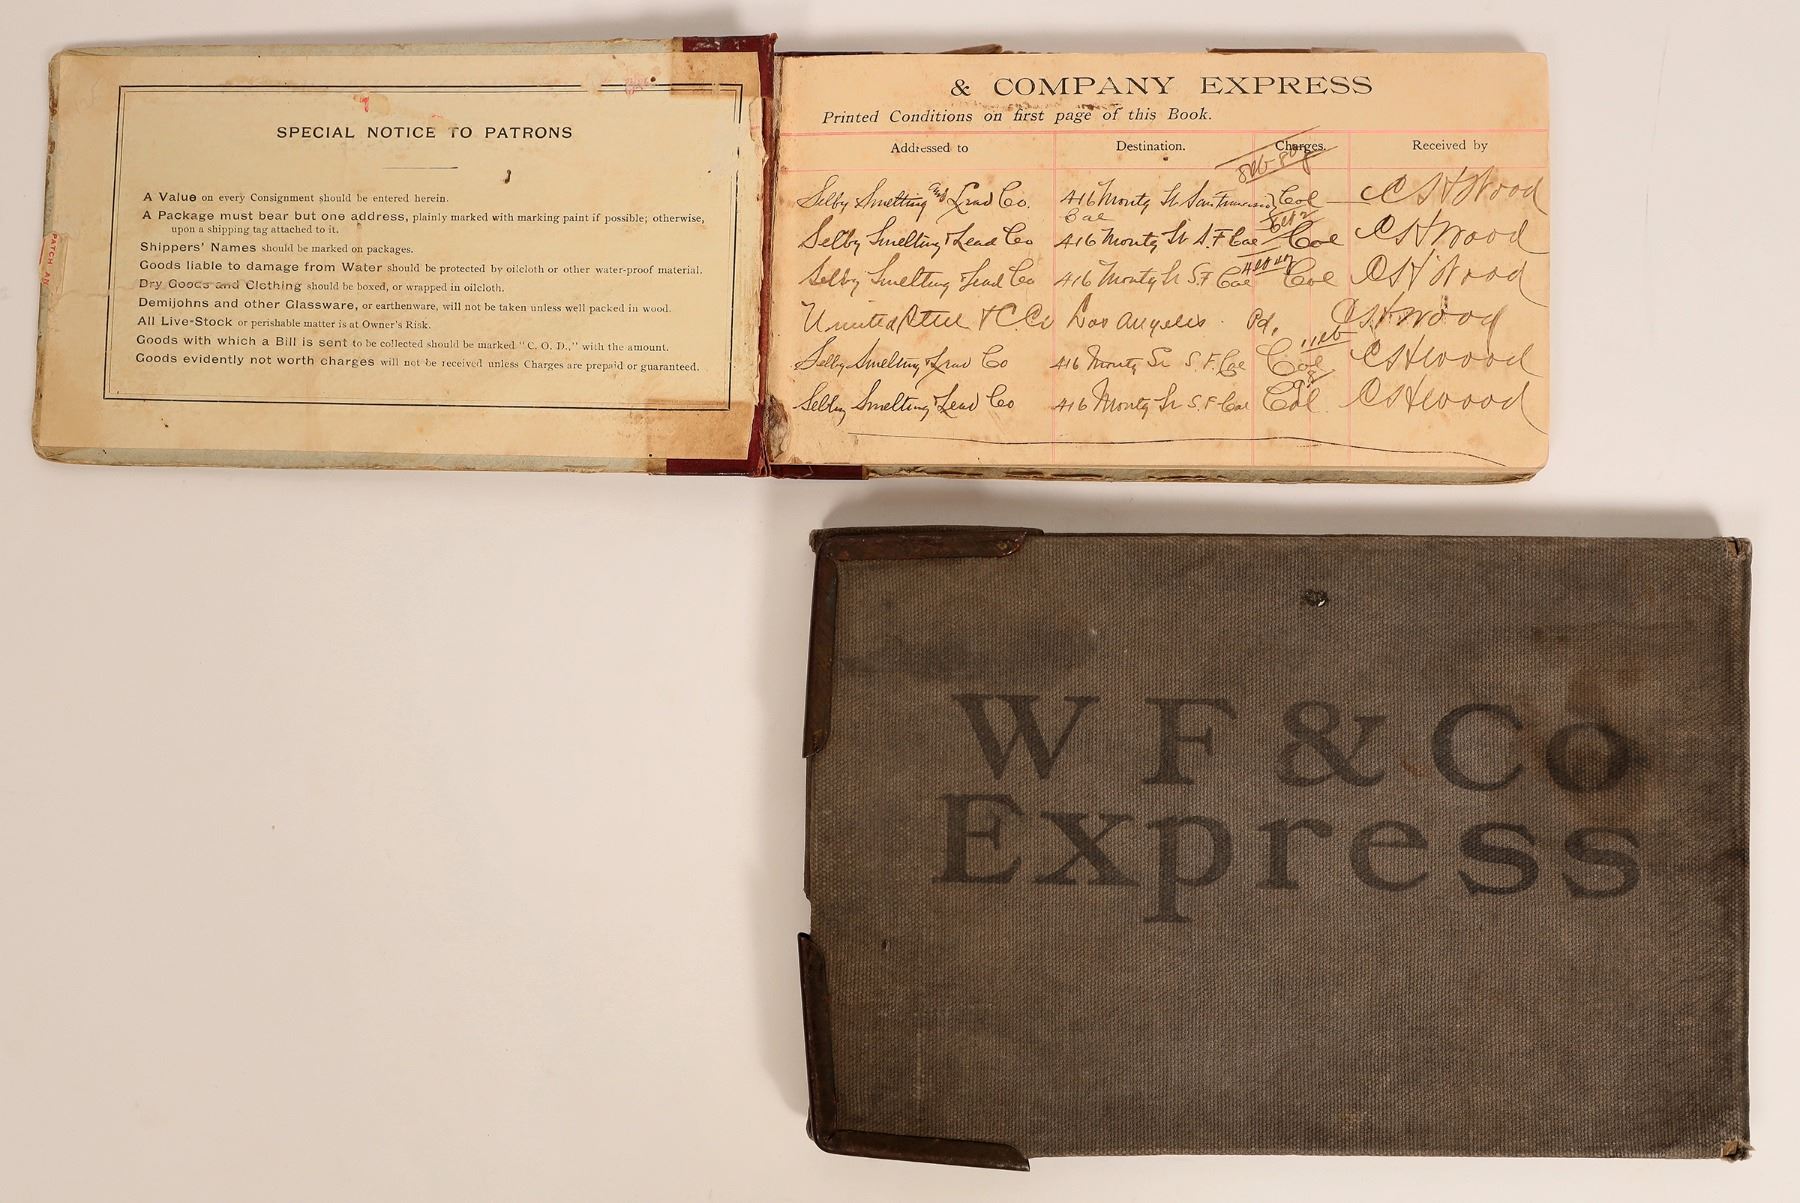 SPECIAL NOTICE TO PATRONS
A Value on every Consignment should be entered herein.
A Package must bear but one address, plainly marked with marking paint if possible; otherwise,
upon a shipping tag attached to it.
Shippers' Names should be marked on packages.
Goods liable to damage from Water should be protected by oilcloth or other water-proof material.
Dry Goods and Clothing should be boxed, or wrapped in oilcloth.
Demijohns and other Glassware, or earthenware, will not be taken unless well packed in wood.
All Live-Stock or perishable matter is at Owner's Risk.
Goods with which a Bill is sent to be collected should be marked "C. O. D.," with the amount.
Goods evidently not worth charges will not be received unless Charges are prepaid or guaranteed.
PATCH AN
& COMPANY EXPRESS
Printed Conditions on first page of this Book.
Addressed to Destination. Charges. Received by
Selby Smelting and Lead Co. 416 Monty St San Francisco Cal Col C S H Wood
Selby Smelting & Lead Co 416 Monty St S. F Cal Col C S H Wood
Selby Smelting & Lead Co 416 Monty St S. F Cal Col C S H Wood
Los Angeles Pd. C S H Wood
Selby Smelting & Lead Co 416 Monty St S. F. Cal Col C S H Wood
Selby Smelting & Lead Co 416 Monty St S. F Cal Col C S H Wood
W F & Co
Express